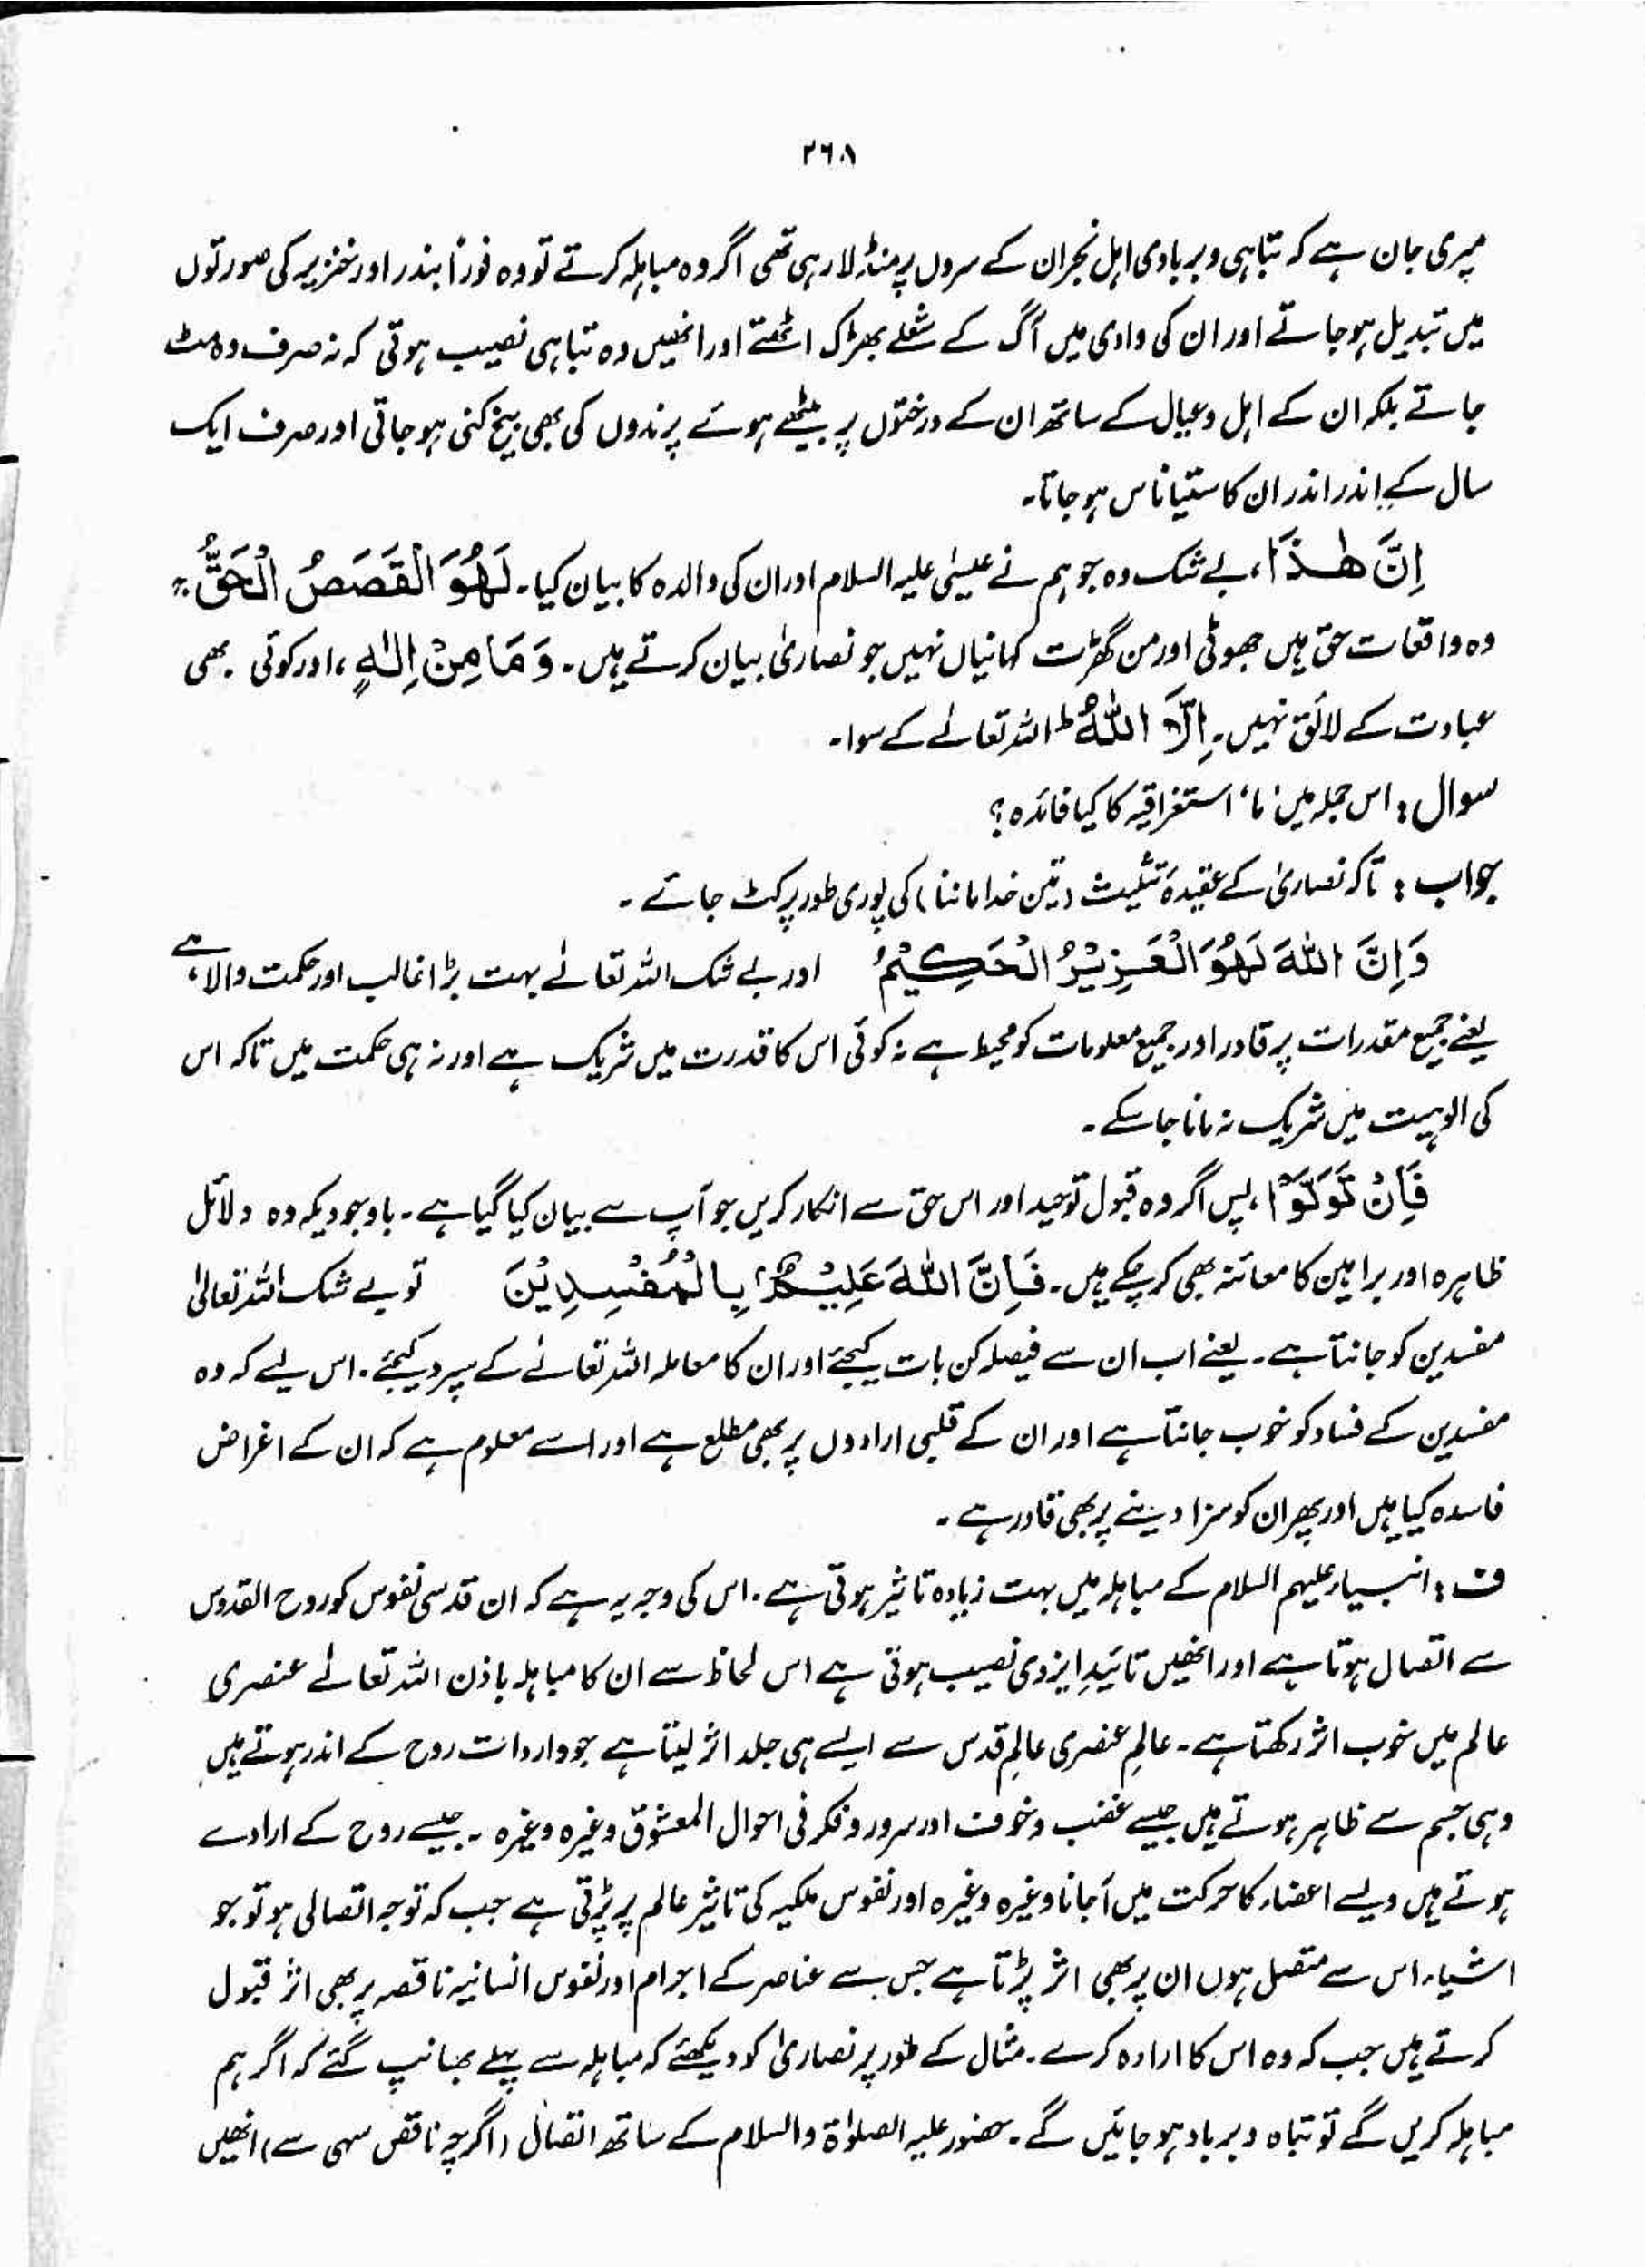 ۲۶۸
میری جان ہے کہ تباہی و بربادی اہل نجران کے سروں پر منڈلا رہی تھی اگر وہ مباہلہ کرتے تو وہ فوراً بندر اور خنزیر کی صورتوں
میں تبدیل ہو جاتے اور ان کی وادی میں آگ کے شعلے بھڑک اٹھتے اور انھیں وہ تباہی نصیب ہوتی کہ نہ صرف وہ مٹ
جاتے بلکہ ان کے اہل و عیال کے ساتھ ان کے درختوں پر بیٹھے ہوئے پرندوں کی بھی بیخ کنی ہو جاتی اور صرف ایک
سال کے اندر اندر ان کا ستیاناس ہو جاتا۔
اِنَّ ھٰذَا، بے شک وہ جو ہم نے عیسٰی علیہ السلام اور ان کی والدہ کا بیان کیا۔ لَھُوَ الْقَصَصُ الْحَقُّ ج
وہ واقعات حق ہیں جھوٹی اور من گھڑت کہانیاں نہیں جو نصاریٰ بیان کرتے ہیں۔ وَمَا مِنْ اِلٰہٍ، اور کوئی بھی
عبادت کے لائق نہیں۔ اِلَّا اللّٰہُ ط اللہ تعالےٰ کے سوا۔
سوال : اس جملہ میں 'ما' استغراقیہ کا کیا فائدہ ؟
جواب : تاکہ نصاریٰ کے عقیدۂ تثلیث (تین خدا ماننا) کی پوری طور پر کٹ جائے ۔
وَاِنَّ اللّٰہَ لَھُوَ الْعَزِیْزُ الْحَکِیْمُ اور بے شک اللہ تعالےٰ بہت بڑا غالب اور حکمت والا ہے،
یعنے جمیع مقدرات پر قادر اور جمیع معلومات کو محیط ہے نہ کوئی اس کا قدرت میں شریک ہے اور نہ ہی حکمت میں تاکہ اس
کی الوہیت میں شریک نہ مانا جا سکے ۔
فَاِنْ تَوَلَّوْا، پس اگر وہ قبول توحید اور اس حق سے انکار کریں جو آپ سے بیان کیا گیا ہے۔ باوجودیکہ وہ دلائل
ظاہرہ اور براہین کا معائنہ بھی کر چکے ہیں۔ فَاِنَّ اللّٰہَ عَلِیْمٌۢ بِالْمُفْسِدِیْنَ تو بے شک اللہ تعالیٰ
مفسدین کو جانتا ہے۔ یعنے اب ان سے فیصلہ کن بات کیجئے اور ان کا معاملہ اللہ تعالےٰ کے سپرد کیجئے۔ اس لیے کہ وہ
مفسدین کے فساد کو خوب جانتا ہے اور ان کے قلبی ارادوں پر بھی مطلع ہے اور اسے معلوم ہے کہ ان کے اغراض
فاسدہ کیا ہیں اور پھر ان کو سزا دینے پر بھی قادر ہے ۔
ف : انبیاء علیہم السلام کے مباہلہ میں بہت زیادہ تاثیر ہوتی ہے۔ اس کی وجہ یہ ہے کہ ان قدسی نفوس کو روح القدوس
سے اتصال ہوتا ہے اور انھیں تائیدِ ایزدی نصیب ہوتی ہے اس لحاظ سے ان کا مباہلہ باذن اللہ تعالےٰ عنصری
عالم میں خوب اثر رکھتا ہے۔ عالمِ عنصری عالمِ قدس سے ایسے ہی جلد اثر لیتا ہے جو واردات روح کے اندر ہوتے ہیں
وہی جسم سے ظاہر ہوتے ہیں جیسے غضب و خوف اور سرور و فکر فی احوال المعشوق وغیرہ وغیرہ ۔ جیسے روح کے ارادے
ہوتے ہیں ویسے اعضاء کا حرکت میں آجانا وغیرہ وغیرہ اور نفوس ملکیہ کی تاثیر عالم پر پڑتی ہے جب کہ توجہ اتصالی ہو تو جو
اشیاء اس سے متصل ہوں ان پر بھی اثر پڑتا ہے جس سے عناصر کے اجرام اور نفوس انسانیہ ناقصہ پر بھی اثر قبول
کرتے ہیں جب کہ وہ اس کا ارادہ کرے۔ مثال کے طور پر نصاریٰ کو دیکھئے کہ مباہلہ سے پہلے بھانپ گئے کہ اگر ہم
مباہلہ کریں گے تو تباہ و برباد ہو جائیں گے۔ حضور علیہ الصلوٰۃ والسلام کے ساتھ اتصال (اگرچہ ناقص سہی سے) انھیں